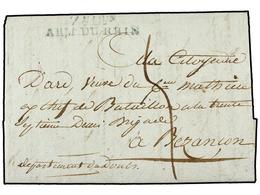 ARM. DU RHIN
a la Citoyenne
D'ard Veuve du Cen mathieu
ex chef de Bataillon a la trente
Septieme Demi Brigade
a Bezançon
département du Doubs